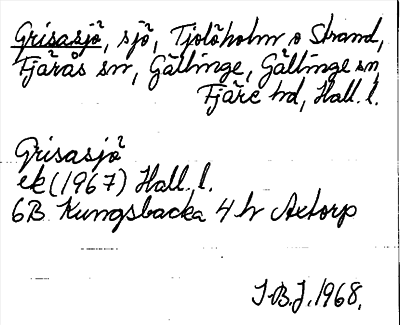 Grisasjö, sjö, Tjolöholm o Strand,
Fjärås sn, Gällinge, Gällinge sn,
Fjäre hd, Hall. l.
Grisasjö
ek (1967) Hall. l.
6B Kungsbacka 4 h Axtorp
I.B.J. 1968.